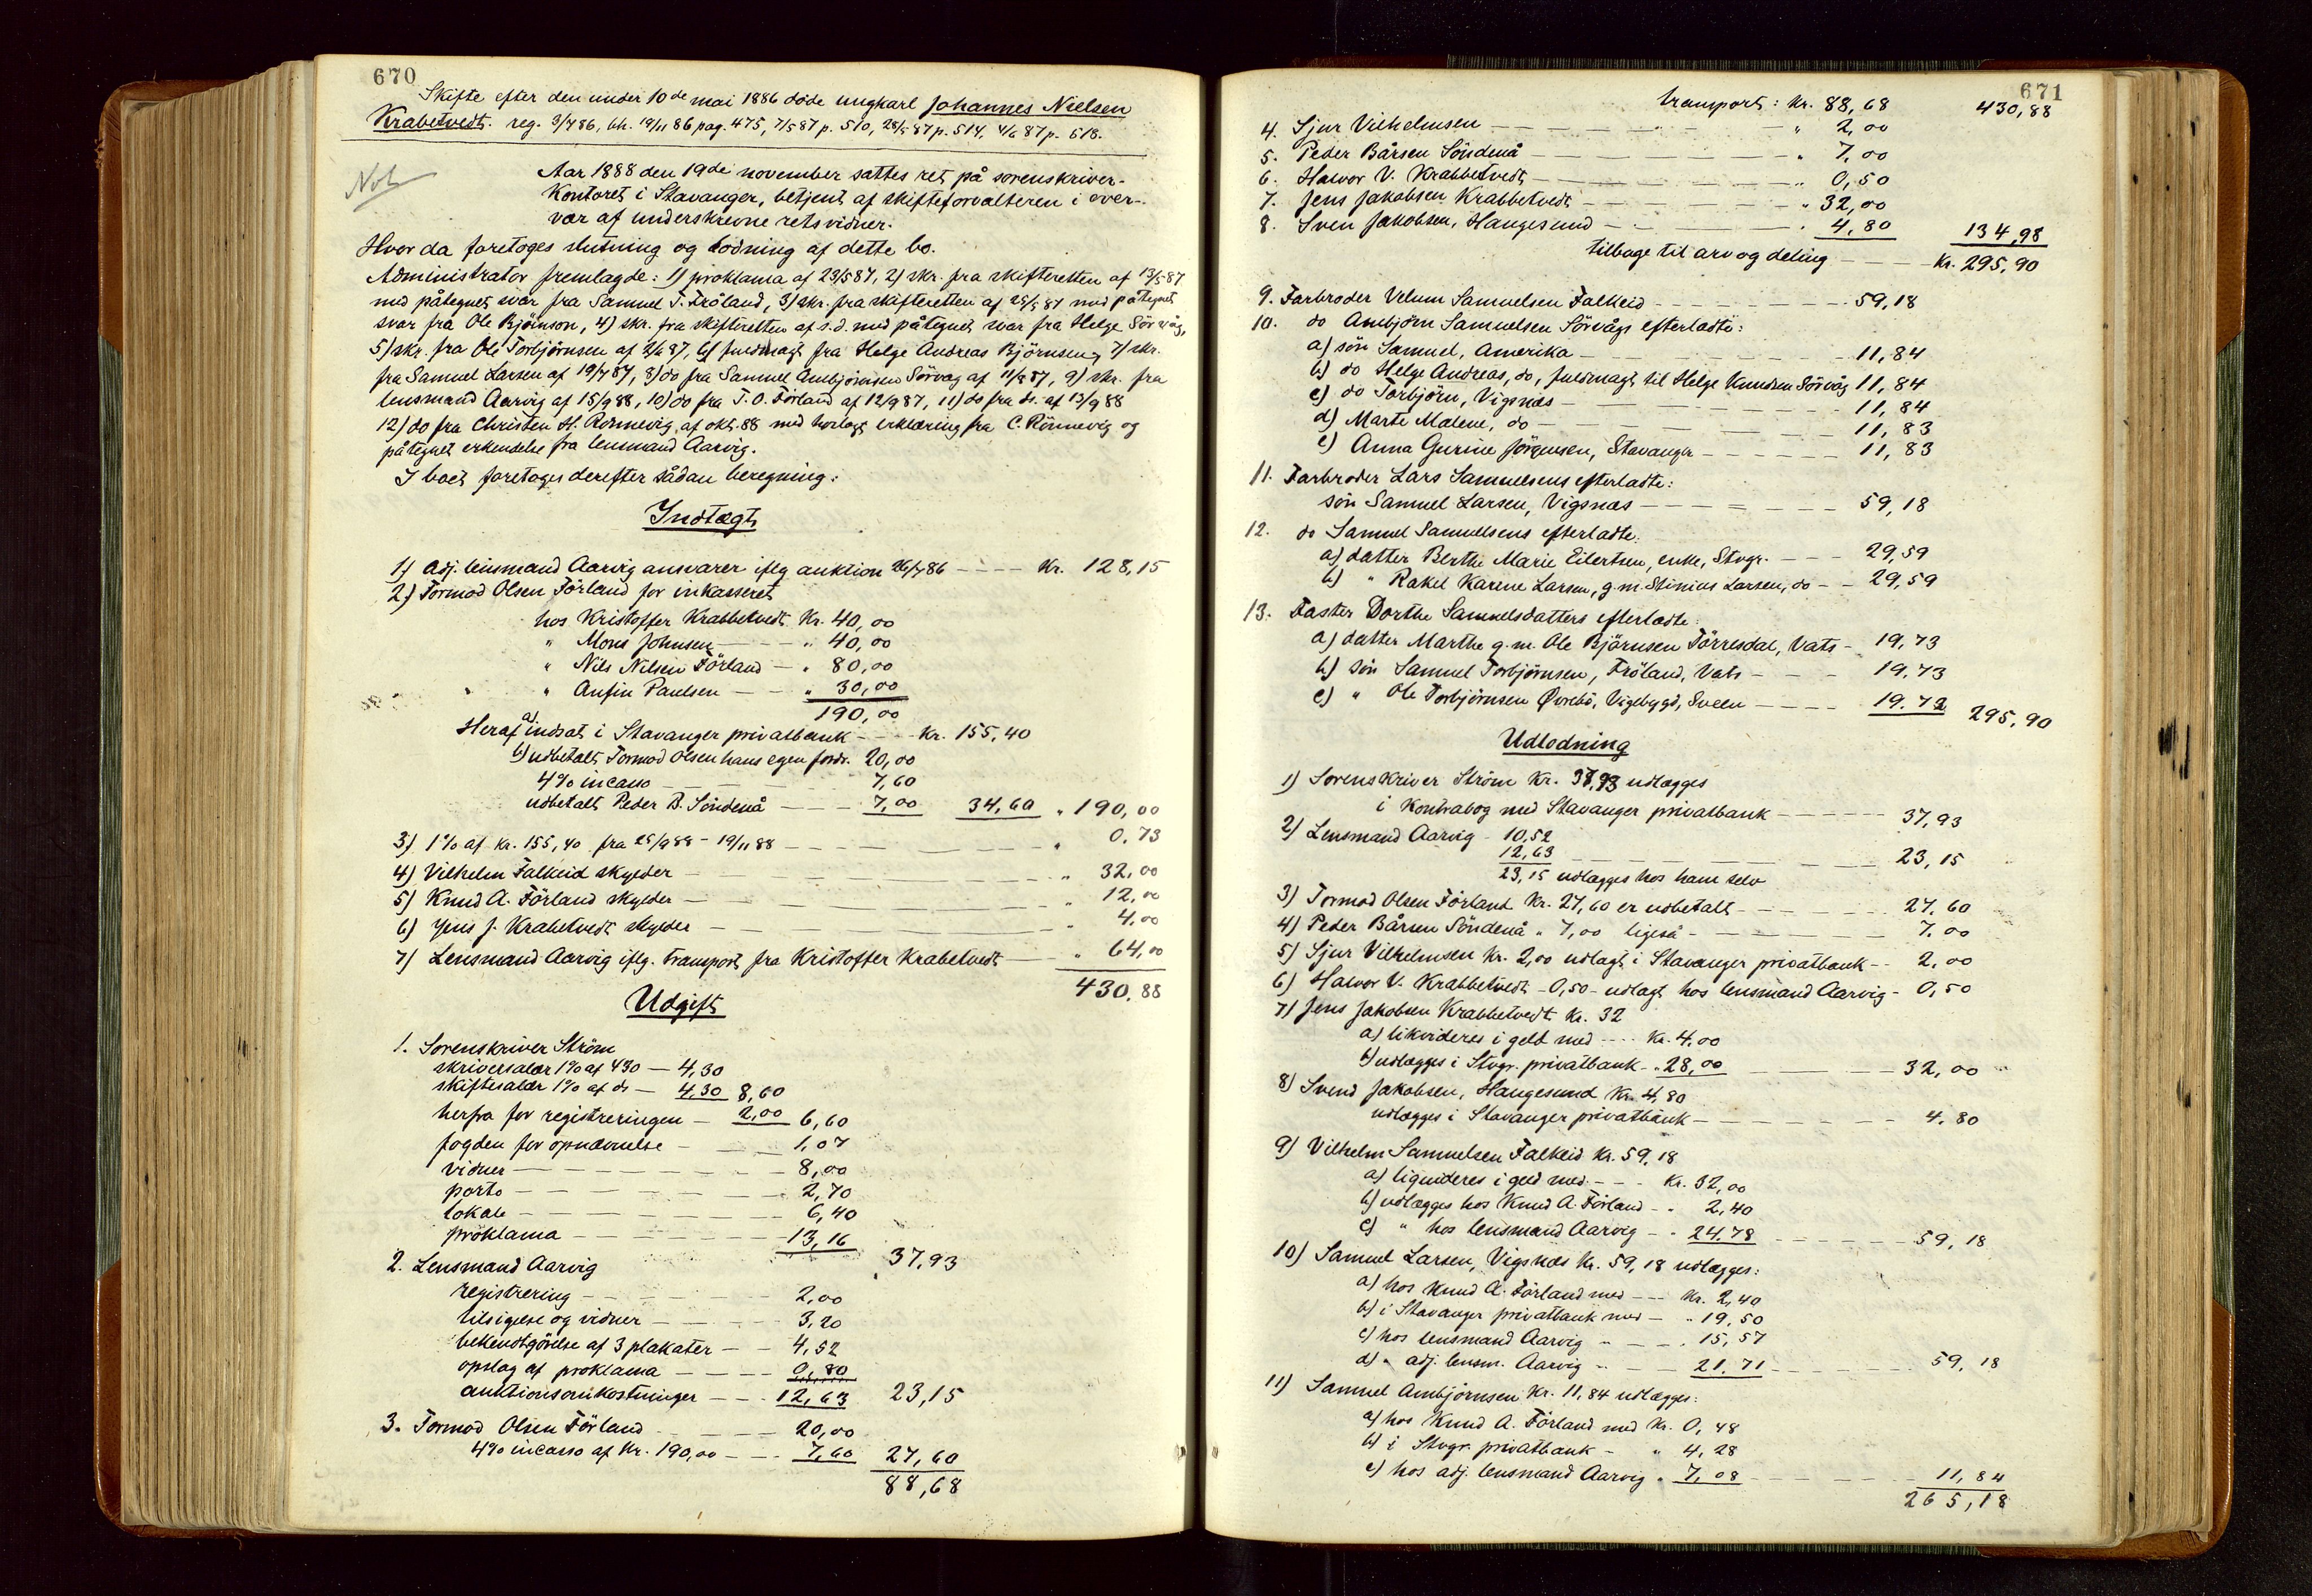 670
Skifte efter den under 10de mai 1886 döde ungkarl Johannes Nielsen
Krabetvedt. reg. 3/7 86, bh. 19/11 86 pag. 475, 7/5 87 p. 510, 28/5 87 p. 514, 4/6 87 p. 518.
Not
Aar 1888 den 19de november sattes ret på sorenskriver-
kontoret i Stavanger, betjent af skifteforvalteren i over-
vær af underskrevne retsvidner.
Hvor da foretoges slutning og lodning af dette bo.
Administrator fremlagde: 1) proklama af 23/5 87, 2) skr. fra skifteretten af 13/5 87
med påtegnet svar fra Samuel T. Fröland, 3) skr. fra skifteretten af 28/5 87 med påtegnet
svar fra Ole Björnson, 4) skr. fra skifteretten af s.d. med påtegnet svar fra Helge Sörvåg,
5) skr. fra Ole Torbjörnsen af 2/6 87, 6) fuldmagt fra Helge Andreas Björnsen, 7) skr.
fra Samuel Larsen af 19/7 87, 8) do fra Samuel Ambjörnsen Sörvåg af 11/8 87, 9) skr. fra
lensmand Aarvig af 15/9 88, 10) do fra T. O. Förland af 12/9 87, 11) do fra do. af 13/9 88
12) do fra Christen H. Rönnevig af okt. 88 med horlagt erklæring fra C. Rönnevig og
påtegnet erkendelse fra lensmand Aarvig.
I boet foretoges derefter sådan beregning:
Indtægt
1) adj. lensmand Aarvig ansvarer iflg auktion 26/7 86 - - - - Kr. 128,15
2) Tormod Olsen Förland for inkasseret
hos Kristoffer Krabbetvedt Kr. 40,00
" Mons Johnsen — — " 40,00
" Nils Nilsen Förland — " 80,00
" Anfin Paulsen — — " 30,00
190,00
Heraf a) indsat i Stavanger privatbank - - - Kr. 155,40
b) udbetalt Tormod Olsen hans egen fordr. 20,00
4% incasso — — — 7,60
udbetalt Peder B. Söndenå — — 7,00 34,60 " 190,00
3) 1% af kr. 155,40 fra 25/9 88 - 19/11 88 — — — " 0,73
4) Vilhelm Falkeid skylder — — — " 32,00
5) Knud A. Förland skylder — — — " 12,00
6) Jens J. Krabetvedt skylder — — — " 4,00
7) Lensmand Aarvig iflg. transport fra Kristoffer Krabetvedt — " 64,00
430,88
Udgift
1. Sorenskriver Ström
skriversalær 1% af 430 — 4,30
skiftesalær 1% af do — 4,30 8,60
herfra for registreringen — 2,00 6,60
fogden for opnævnelse — 1,07
vidner — — — 8,00
porto — — — 2,70
lokale — — — 6,40
proklama — — — 13,16
37,93
2. Lensmand Aarvig
registrering — — — 2,00
tilsigelse og vidner — — 3,20
bekendtgörelse af 3 plakater — — 4,52
opslag af proklama — — 0,80
auktionsomkostninger — — 12,63 23,15
3. Tormod Olsen Förland — — 20,00
4% incasso af Kr. 190,00 — — 7,60 27,60
88,68
671
transport: Kr. 88,68 430,88
4. Sjur Vilhelmsen — — — " 2,00
5. Peder Bårsen Söndenå — — — " 7,00
6. Halvor V. Krabbetvedt — — — " 0,50
7. Jens Jakobsen Krabbetvedt — — — " 32,00
8. Sven Jakobsen, Haugesund — — — " 4,80 134,98
tilbage til arv og deling — — — Kr. 295,90
9. Farbroder Velum Samuelsen Falkeid — — — 59,18
10. do Ambjörn Samuelsen Sörvågs efterladte:
a) sön Samuel, Amerika — — — 11,84
b) do Helge Andreas, do, fuldmagt til Helge Knudsen Sörvåg 11,84
c) do Torbjörn, Vigsnæs — — — 11,84
d) Marte Malene, do — — — 11,83
e) Anna Gurine Jörgensen, Stavanger — — — 11,83
11. Farbroder Lars Samuelsens efterladte:
sön Samuel Larsen, Vigsnæs — — — 59,18
12. do Samuel Samuelsens efterladte:
a) datter Berthe Marie Eilertsen, enke, Stvgr. — — 29,59
b) " Rakel Karine Larsen, g. m. Stinius Larsen, do — — 29,59
13. Faster Dorthe Samuelsdatters efterladte:
a) datter Marthe g. m. Ole Björnsen Törresdal, Vats — 19,73
b) sön Samuel Torbjörnsen, Fröland, Vats — — 19,73
c) " Ole Torbjörnsen Øvrebö, Vigebygd, Sveen — — 19,72 295,90
Udlodning
1) Sorenskriver Ström Kr. 37,93 udlægges
i Kontrabog med Stavanger privatbank — — — 37,93
2) Lensmand Aarvig - 10,52
12,63 — — — 23,15
23,15 udlægges hos ham selv
3) Tormod Olsen Förland Kr. 27,60 er udbetalt — — — 27,60
4) Peder Bårsen Söndenå " 7,00 ligeså — — — 7,00
5) Sjur Vilhelmsen Kr. 2,00 udlagt i Stavanger privatbank — 2,00
6) Halvor V. Krabbetvedt - 0,50 - udlagt hos lensmand Aarvig - 0,50
7) Jens Jakobsen Krabbetvedt Kr. 32
a) likvideres i geld med — Kr. 4,00
b) udlægges i Stvgr. privatbank - " 28,00 — — — 32,00
8) Svend Jakobsen, Haugesund Kr. 4,80
udlægges i Stavanger privatbank — — — 4,80
9) Vilhelm Samuelsen Falkeid Kr. 59,18
a) liquideres i geld med — — Kr. 32,00
b) udlægges hos Knud A. Förland — " 2,40
c) " hos lensmand Aarvig — " 24,78 — — — 59,18
10) Samuel Larsen, Vigsnæs Kr. 59,18 udlægges:
a) hos Knud A. Förland med — Kr. 2,40
b) i Stavanger privatbank med — " 19,50
c) hos lensmand Aarvig — — " 15,57
d) " adj. lensm. Aarvig — — 21,71 — — — 59,18
11) Samuel Ambjörnsen Kr. 11,84 udlægges:
a) hos Knud A. Förland med Kr. 0,48
b) i Stvgr. privatbank — " 4,28
c) hos adj. lensmand Aarvig " 7,08 — — — 11,84
265,18